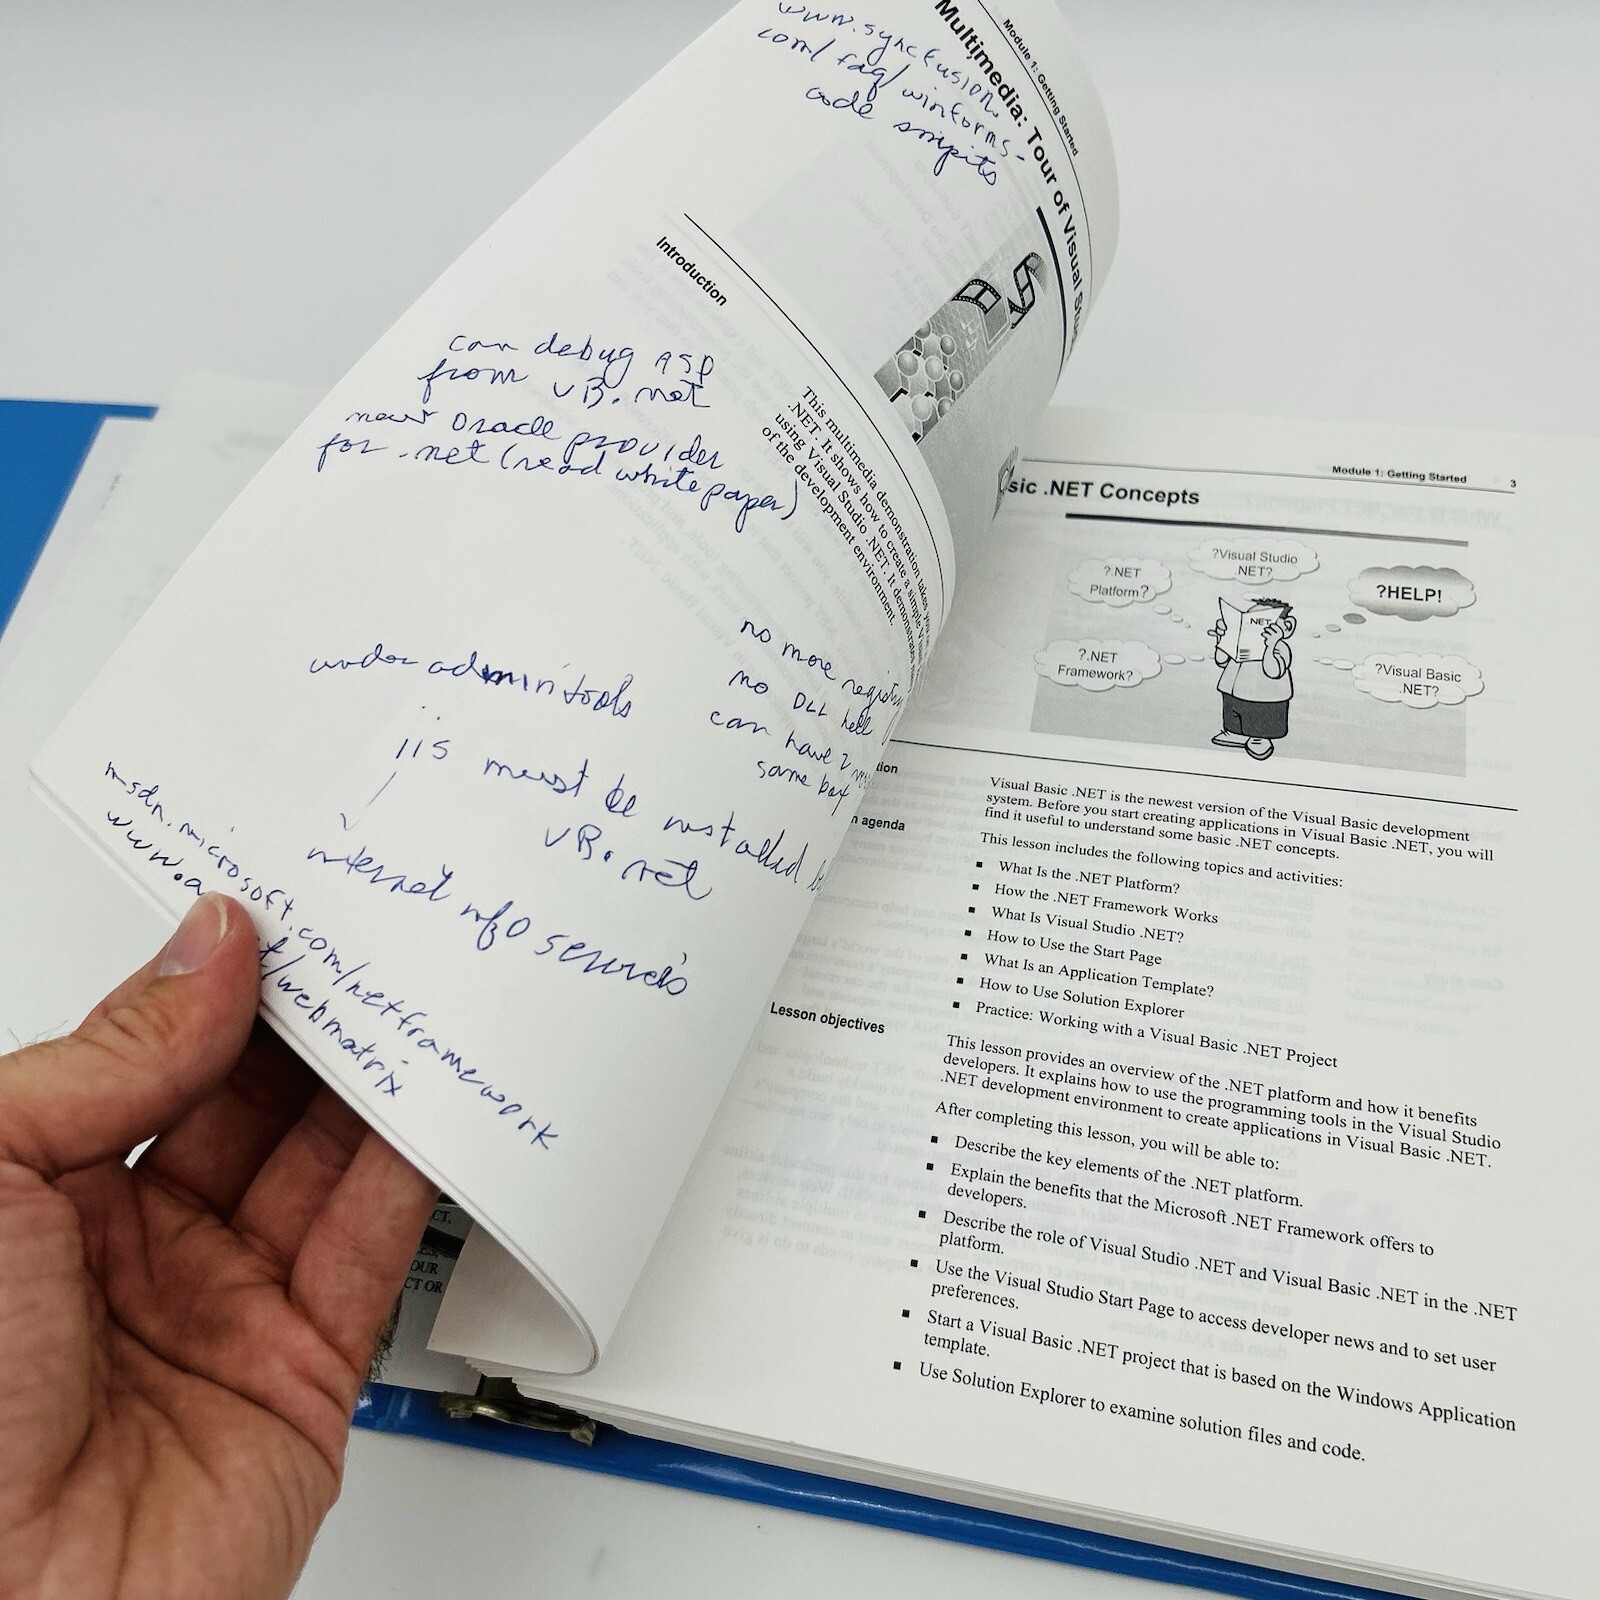 www.syncfusion.
com/faq/winforms-
code snipits
Module 1: Getting Started
Multimedia: Tour of Visual
Introduction
This multimedia demonstration takes
.NET. It shows how to create a simple
using Visual Studio .NET. It demonstrates
of the development environment.
can debug ASP
from VB.net
new Oracle provider
for .net (read white paper)
no more
no DLL hell
can have 2
same box
under admin tools
iis must be installed
VB.net
internet info
msdn.microsoft.com/netframework
/webmatrix
CT,
OUR
CT OR
Module 1: Getting Started 3
sic .NET Concepts
?.NET
Platform?
?Visual Studio
.NET?
?HELP!
.NET
?.NET
Framework?
?Visual Basic
.NET?
tion
Visual Basic .NET is the newest version of the Visual Basic development
system. Before you start creating applications in Visual Basic .NET, you will
find it useful to understand some basic .NET concepts.
n agenda
This lesson includes the following topics and activities:
▪ What Is the .NET Platform?
▪ How the .NET Framework Works
▪ What Is Visual Studio .NET?
▪ How to Use the Start Page
▪ What Is an Application Template?
▪ How to Use Solution Explorer
▪ Practice: Working with a Visual Basic .NET Project
Lesson objectives
This lesson provides an overview of the .NET platform and how it benefits
developers. It explains how to use the programming tools in the Visual Studio
.NET development environment to create applications in Visual Basic .NET.
After completing this lesson, you will be able to:
▪ Describe the key elements of the .NET platform.
▪ Explain the benefits that the Microsoft .NET Framework offers to
developers.
▪ Describe the role of Visual Studio .NET and Visual Basic .NET in the .NET
platform.
▪ Use the Visual Studio Start Page to access developer news and to set user
preferences.
▪ Start a Visual Basic .NET project that is based on the Windows Application
template.
▪ Use Solution Explorer to examine solution files and code.